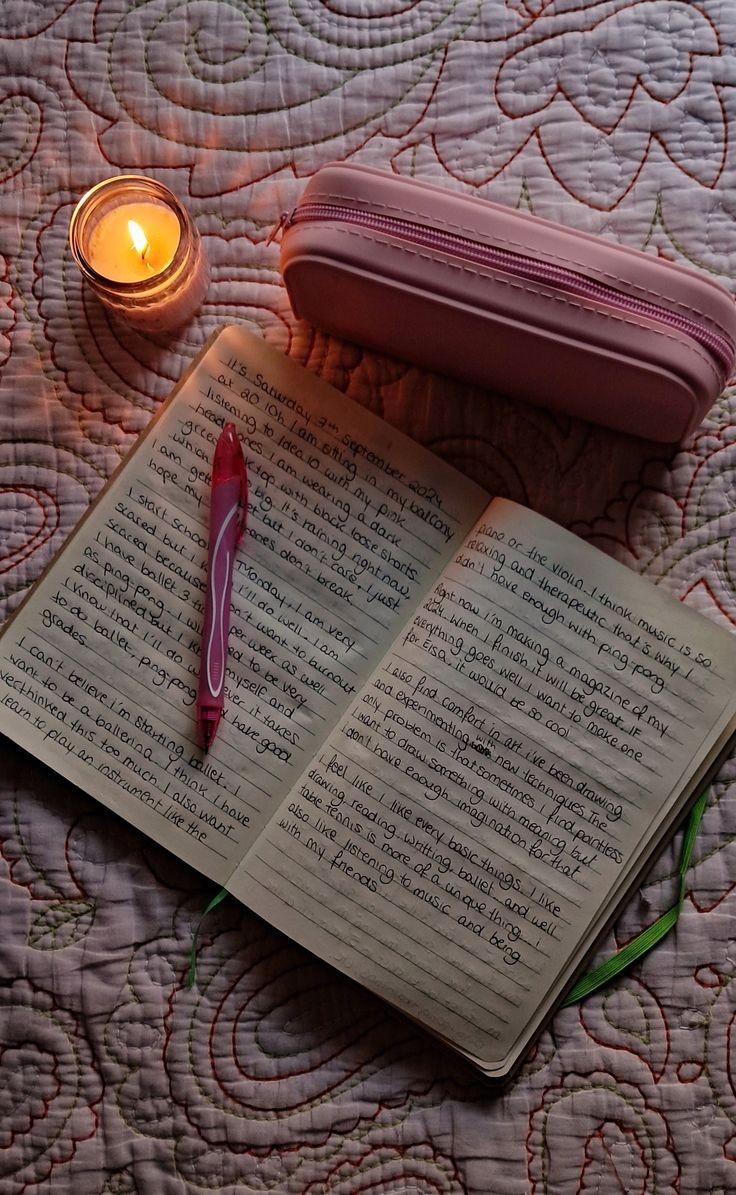 it's Saturday 7th september 2024
at 20:10h. I am sitting in my balcony
listening to Idea 10 with my pink
headphones. I am wearing a dark
green top with black loose shorts
which are big. it's raining right now,
I am getting wet but I don't care. I just
hope my phones don't break.
I start school Monday, I am very
scared but I know I'll do well. I am
scared because I don't want to burnout
I have ballet 3 per week as well
as ping pong. I need to be very
disciplined but I
I know that I'll do myself and
to do ballet, ping pong have good
grades.
I can't believe i'm starting ballet. I
want to be a ballerina. I think I have
verthinked this too much. I also want
learn to play an instrument like the
piano or the violin. I think music is so
relaxing and therapeutic that's why I
don't have enough with ping pong
right now i'm making a magazine of my
When I finish it will be great. if
everything goes well I want to make one
for Elsa, it would be so cool
I also find comfort in art. i've been drawing
and experimenting with new techniques. The
only problem is that sometimes I find pointless
I want to draw something with meaning but
I don't have enough imagination for that.
I feel like I like every basic things. I like
drawing, reading, writting, ballet and well
table tennis is more of a unique thing. i
also like listening to music and being
with my friends